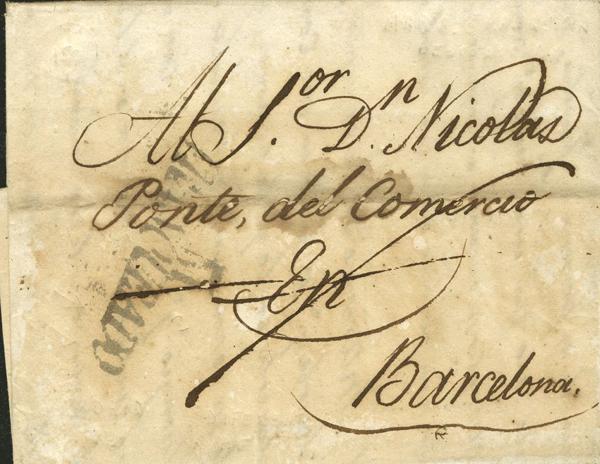 Al S.or D.n Nicolas
Ponte, del Comercio
En
Barcelona.